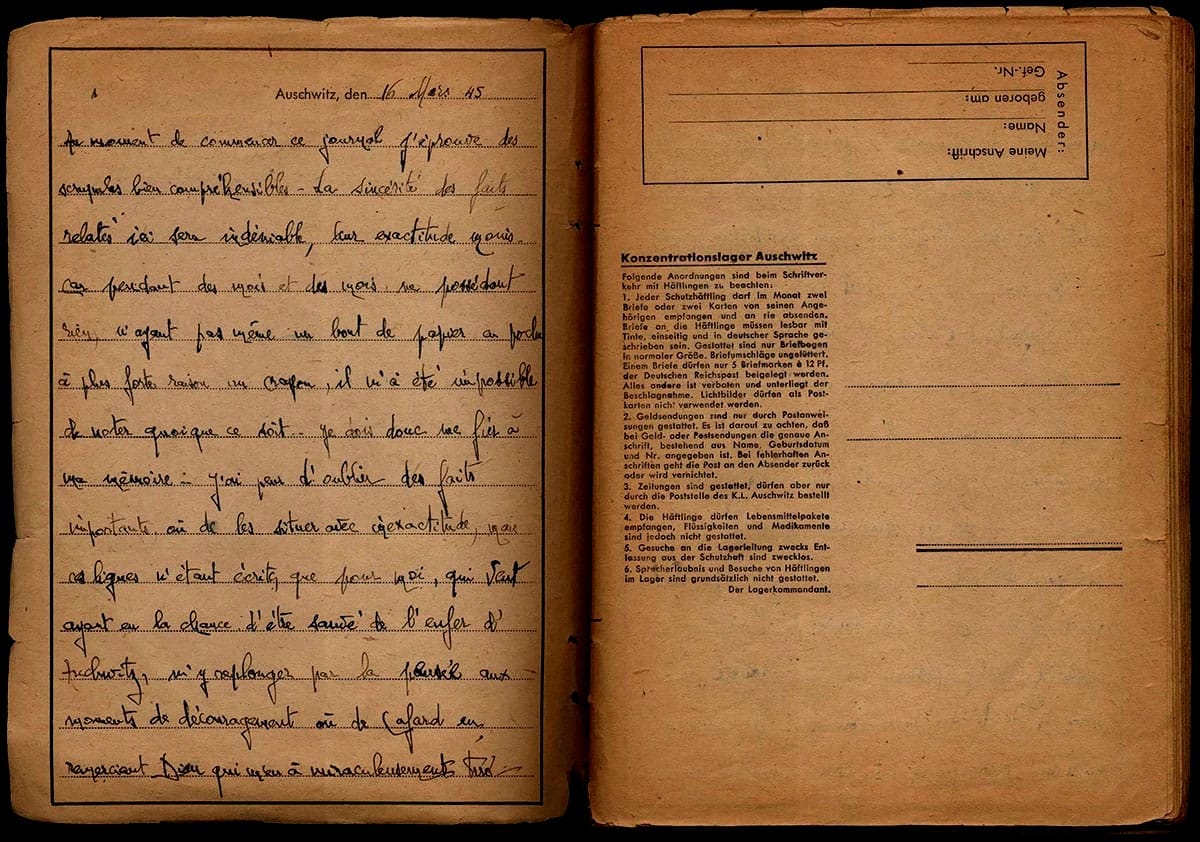 Auschwitz, den 16 Mars 45
Au moment de commencer ce journal j'éprouve des
scrupules bien compréhensibles - La sincérité des faits
relatés ici sera indéniable, leur exactitude moins
car pendant des mois et des mois, ne possédant
rien, n'ayant pas même un bout de papier en poche
à plus forte raison un crayon, il m'a été impossible
de noter quoique ce soit - Je dois donc me fier à
ma mémoire - J'ai peur d'oublier des faits
importants ou de les situer avec inexactitude, mais
ces lignes n'étant écrites que pour moi, qui veut
ayant eu la chance d'être sauvé de l'enfer d'
Auchwitz, m'y replonger par la pensée aux
moments de découragement ou de Cafard en
remerciant Dieu qui m'en à miraculeusement tiré -
Absender:
Meine Anschrift:
Name:
geboren am:
Gef.-Nr.
Konzentrationslager Auschwitz
Folgende Anordnungen sind beim Schriftver-
kehr mit Häftlingen zu beachten:
1. Jeder Schutzhäftling darf im Monat zwei
Briefe oder zwei Karten von seinen Ange-
hörigen empfangen und an sie absenden.
Briefe an die Häftlinge müssen lesbar mit
Tinte, einseitig und in deutscher Sprache ge-
schrieben sein. Gestattet sind nur Briefbogen
in normaler Größe. Briefumschläge ungefüttert.
Einem Briefe dürfen nur 5 Briefmarken à 12 Pf.
der Deutschen Reichspost beigelegt werden.
Alles andere ist verboten und unterliegt der
Beschlagnahme. Lichtbilder dürfen als Post-
karten nicht verwendet werden.
2. Geldsendungen sind nur durch Postanwei-
sungen gestattet. Es ist darauf zu achten, daß
bei Geld- oder Postsendungen die genaue An-
schrift, bestehend aus Name, Geburtsdatum
und Nr. angegeben ist. Bei fehlerhaften An-
schriften geht die Post an den Absender zurück
oder wird vernichtet.
3. Zeitungen sind gestattet, dürfen aber nur
durch die Poststelle des K.L. Auschwitz bestellt
werden.
4. Die Häftlinge dürfen Lebensmittelpakete
empfangen, Flüssigkeiten und Medikamente
sind jedoch nicht gestattet.
5. Gesuche an die Lagerleitung zwecks Ent-
lassung aus der Schutzhaft sind zwecklos.
6. Sprecherlaubnis und Besuche von Häftlingen
im Lager sind grundsätzlich nicht gestattet.
Der Lagerkommandant.